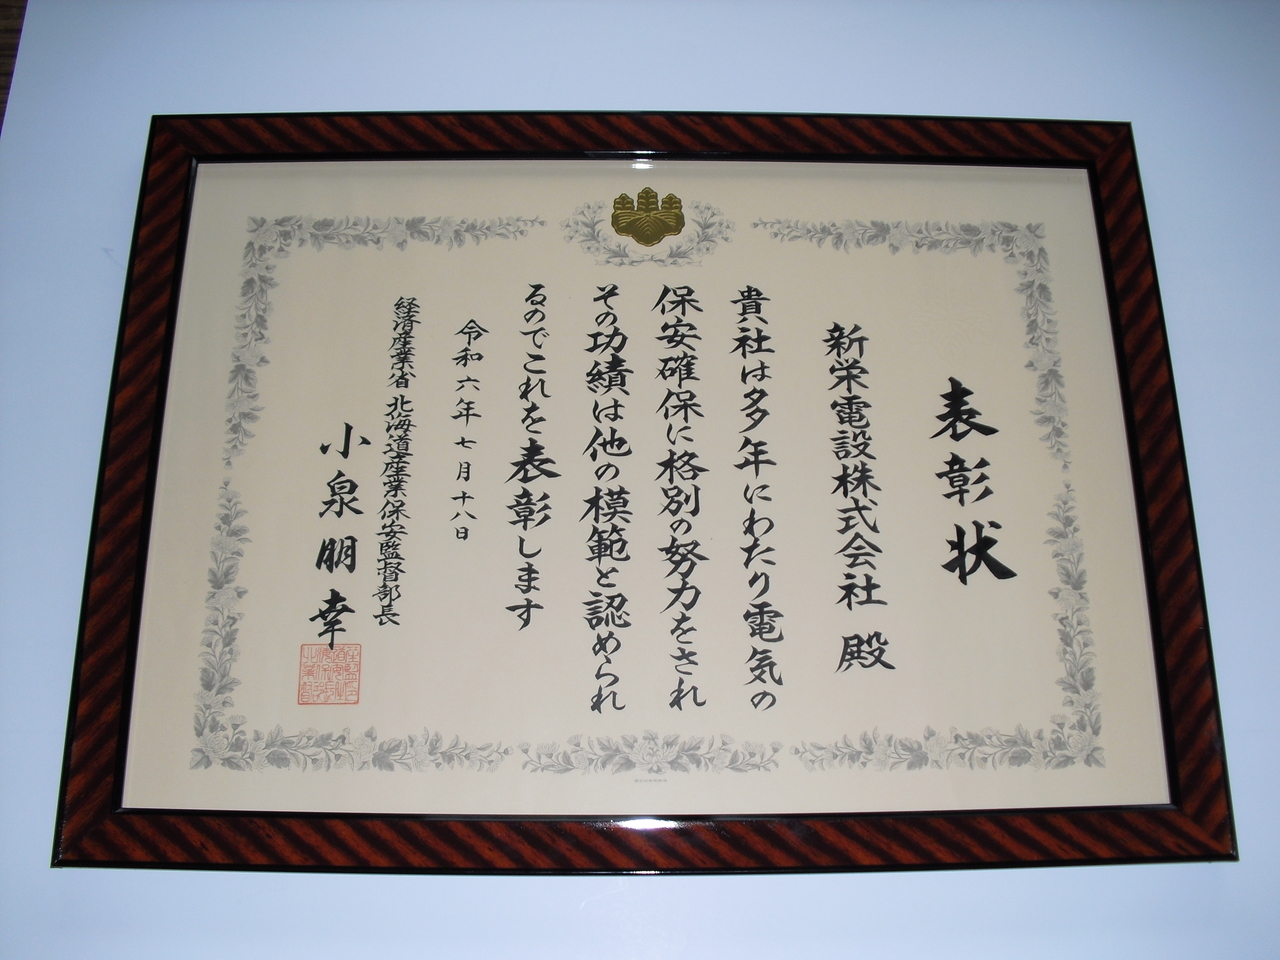 表彰状
新栄電設株式会社 殿
貴社は多年にわたり電気の
保安確保に格別の努力をされ
その功績は他の模範と認められ
るのでこれを表彰します
令和六年七月十八日
経済産業省 北海道産業保安監督部長
小泉朋幸